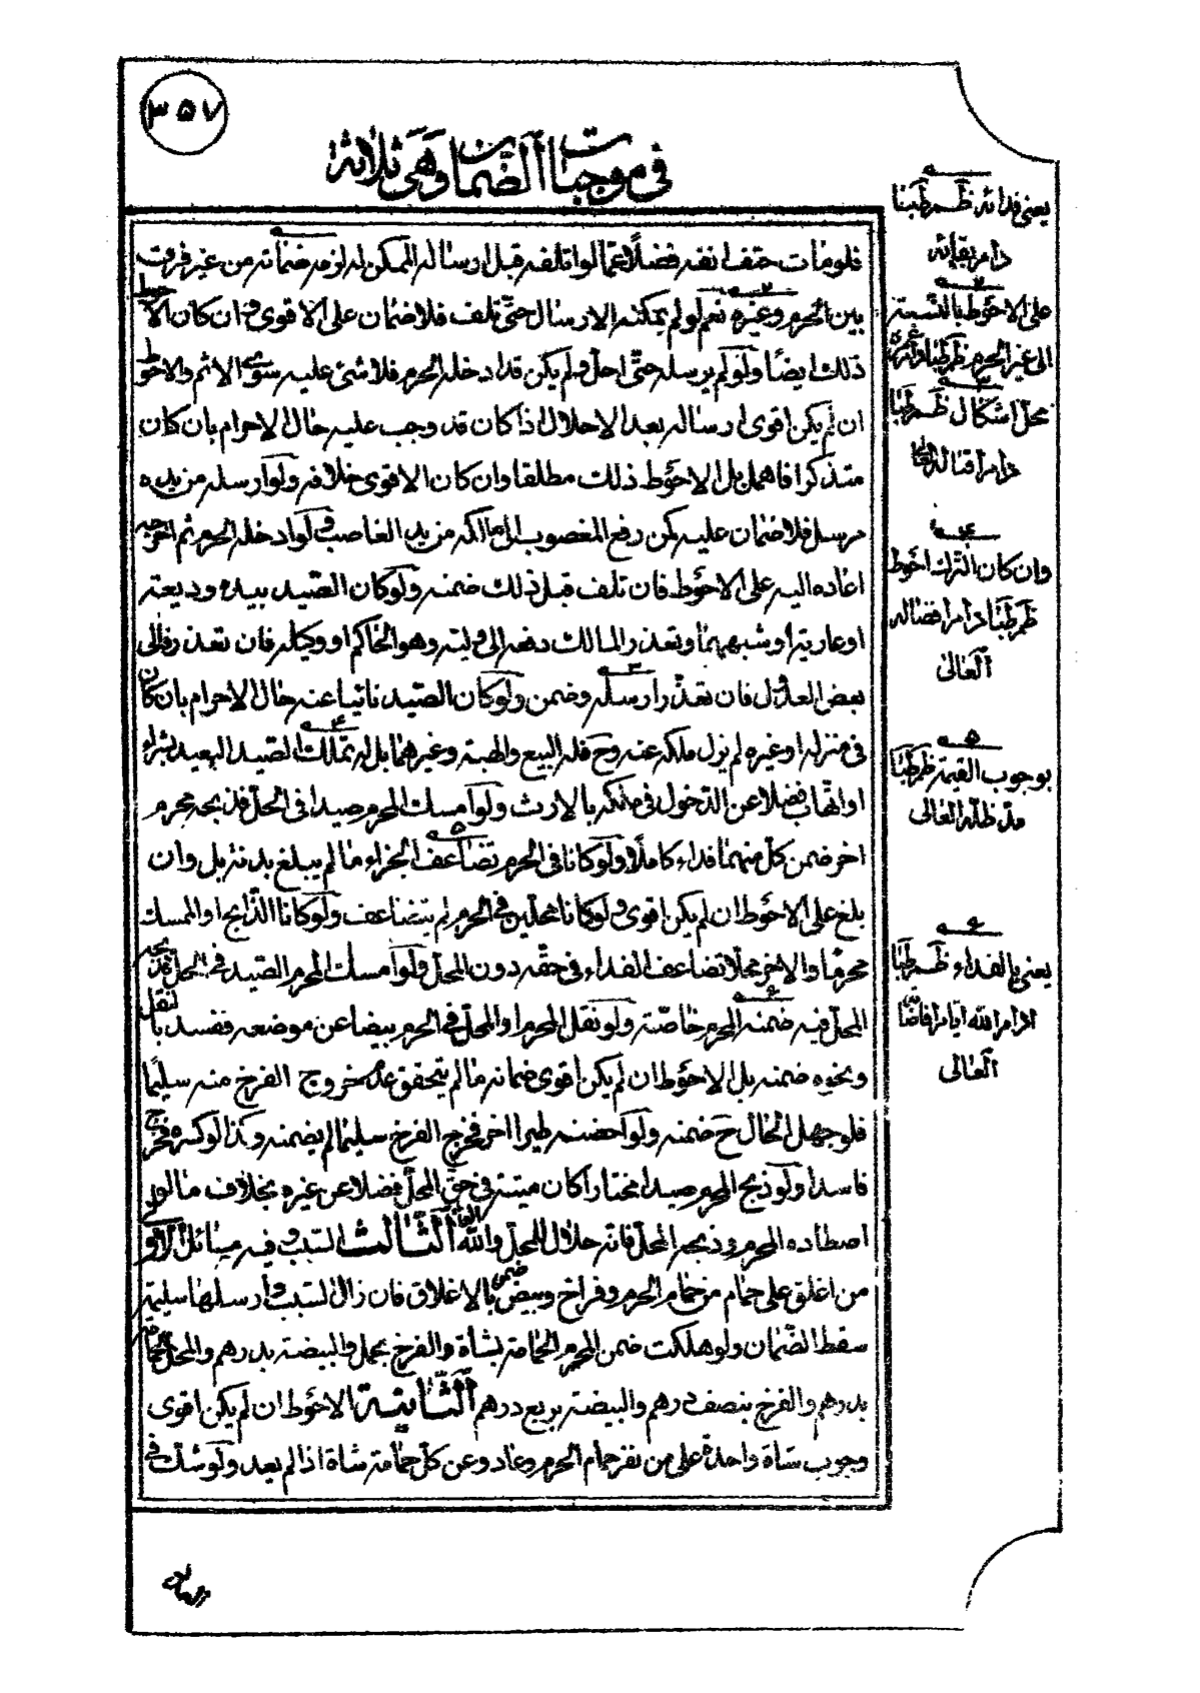 ٣٥٧
في موجبات الضمان وهي ثلاثة
فلو مات حتف انفه فضلا عما لو اتلفه قبل ارساله الممكن له لزمه ضمانه من غير فرق
بين المحرم وغيره نعم لو لم يمكنه الارسال حتى تلف فلا ضمان على الاقوى وان كان الاحوط
ذلك ايضا ولو لم يرسله حتى احل ولم يكن قد ادخله الحرم فلا شئ عليه سوى الاثم والاحوط
ان لم يكن اقوى ارساله بعد الاحلال اذا كان قد وجب عليه حال الاحرام بان كان
متذكرا فاهمل بل الاحوط ذلك مطلقا وان كان الاقوى خلافه ولو ارسله من يده
مرسل فلا ضمان عليه كمن رفع المغصوب الى مالكه من يد الغاصب ولو ادخله الحرم ثم اخرجه
اعاده اليه على الاحوط فان تلف قبل ذلك ضمنه ولو كان الصيد بيده وديعة
او عارية او شبههما وتعذر المالك دفعه الى وليه وهو الحاكم او وكيله فان تعذر فالى
بعض العدول فان تعذر ارسله وضمن ولو كان الصيد نائيا عنه حال الاحرام بان كان
في منزله او غيره لم يزل ملكه عنه وح فله البيع والهبة وغيرهما بل له تملك الصيد البعيد بشراء
او اتهاب فضلا عن الدخول في ملكه بالارث ولو امسك المحرم صيدا في الحل فذبحه محرم
اخر ضمن كل منهما فداء كاملا ولو كانا في الحرم تضاعف الجزاء ما لم يبلغ بدنة بل وان
بلغ على الاحوط ان لم يكن اقوى ولو كانا محلين في الحرم لم يتضاعف ولو كانا الذابح او الممسك
محرما والاخر محلا تضاعف الفداء في حقه دون المحل ولو امسك المحرم الصيد في الحل فذبحه
المحل فيه ضمنه المحرم خاصة ولو نقل المحرم او المحل في الحرم بيضا عن موضعه ففسد بالنقل
ونحوه ضمنه بل الاحوط ان لم يكن اقوى ضمانه ما لم يتحقق عنده خروج الفرخ منه سليما
فلو جهل الحال ح ضمنه ولو احضنه طيرا اخر فخرج الفرخ سليما لم يضمنه وكذا لو كسره فخرج
فاسدا ولو ذبح المحرم صيدا مختارا كان ميتة في حق المحل فضلا عن غيره بخلاف ما لو
اصطاده المحرم وذبحه المحل فانه حلال للمحل والله العالم الثالث التسبيب وفيه مسائل الاولى
من اغلق على حمام من حمام الحرم وفراخ وبيض ضمن بالاغلاق فان زال السبب وارسلها سليمة
سقط الضمان ولو هلكت ضمن المحرم الحمامة بشاة والفرخ بحمل والبيضة بدرهم والمحل الحمامة
بدرهم والفرخ بنصف درهم والبيضة بربع درهم الثانية الاحوط ان لم يكن اقوى
وجوب شاة واحدة على من نفر حمام الحرم وعاد وعن كل حمامة شاة اذا لم يعد ولو شك في
يعني فدائه ظم طبا
دام بقائه
٢
على الاحوط بالنسبة
الى غير الحرم
٣
محل اشكال ظم طبا
٤
وان كان الترك احوط
ظم طبا دام افضاله
العالى
٥
بوجوب القيمة ظم طبا
مد ظله العالى
٦
يعني بالفداء ظم طبا
ادام الله ايام
العالى